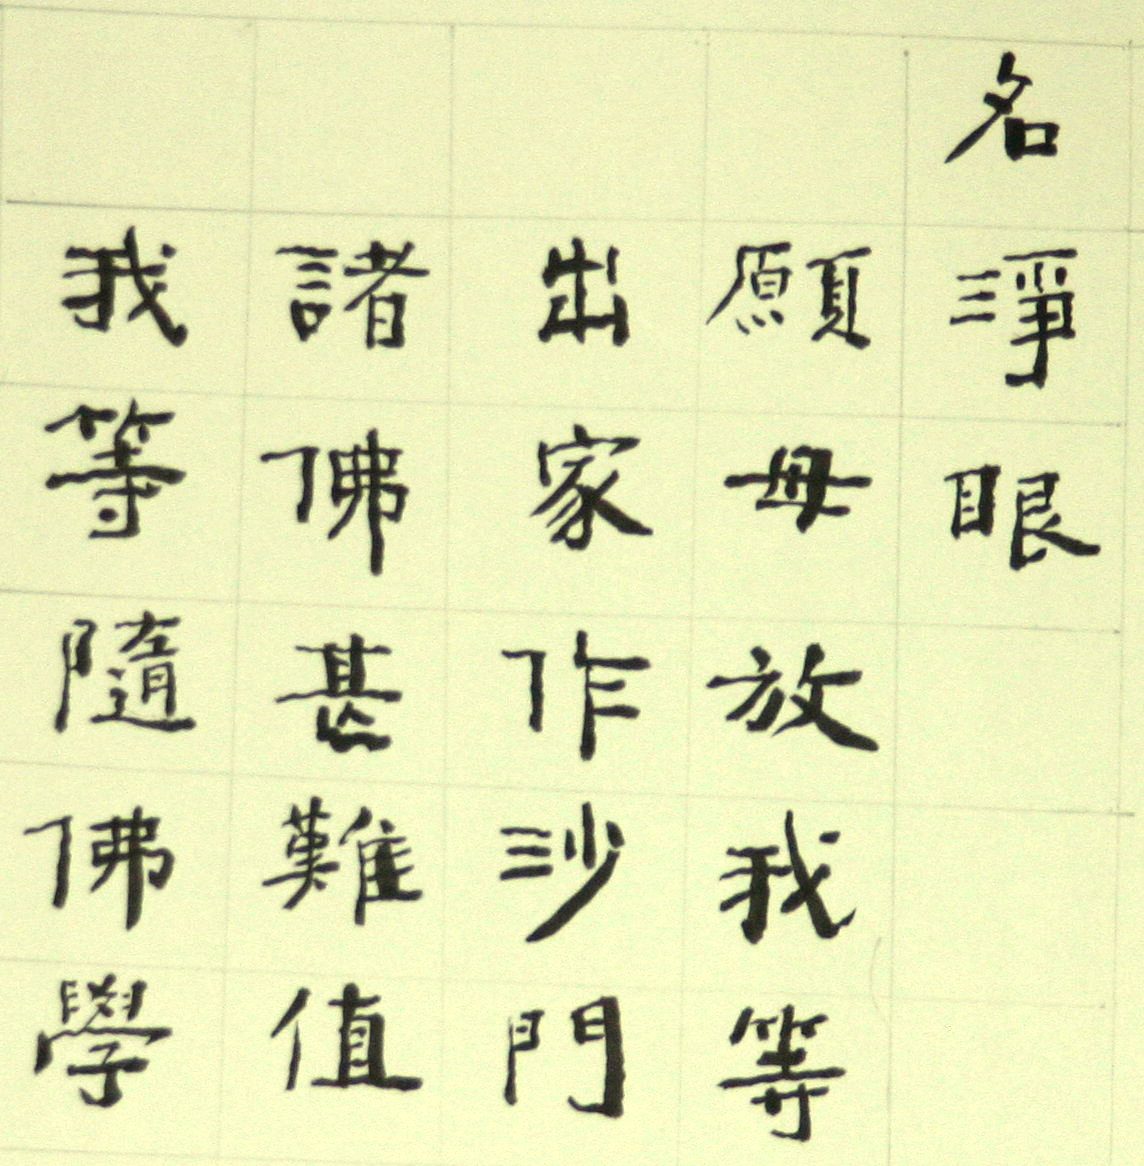 名淨眼
願母放我等
出家作沙門
諸佛甚難值
我等隨佛學